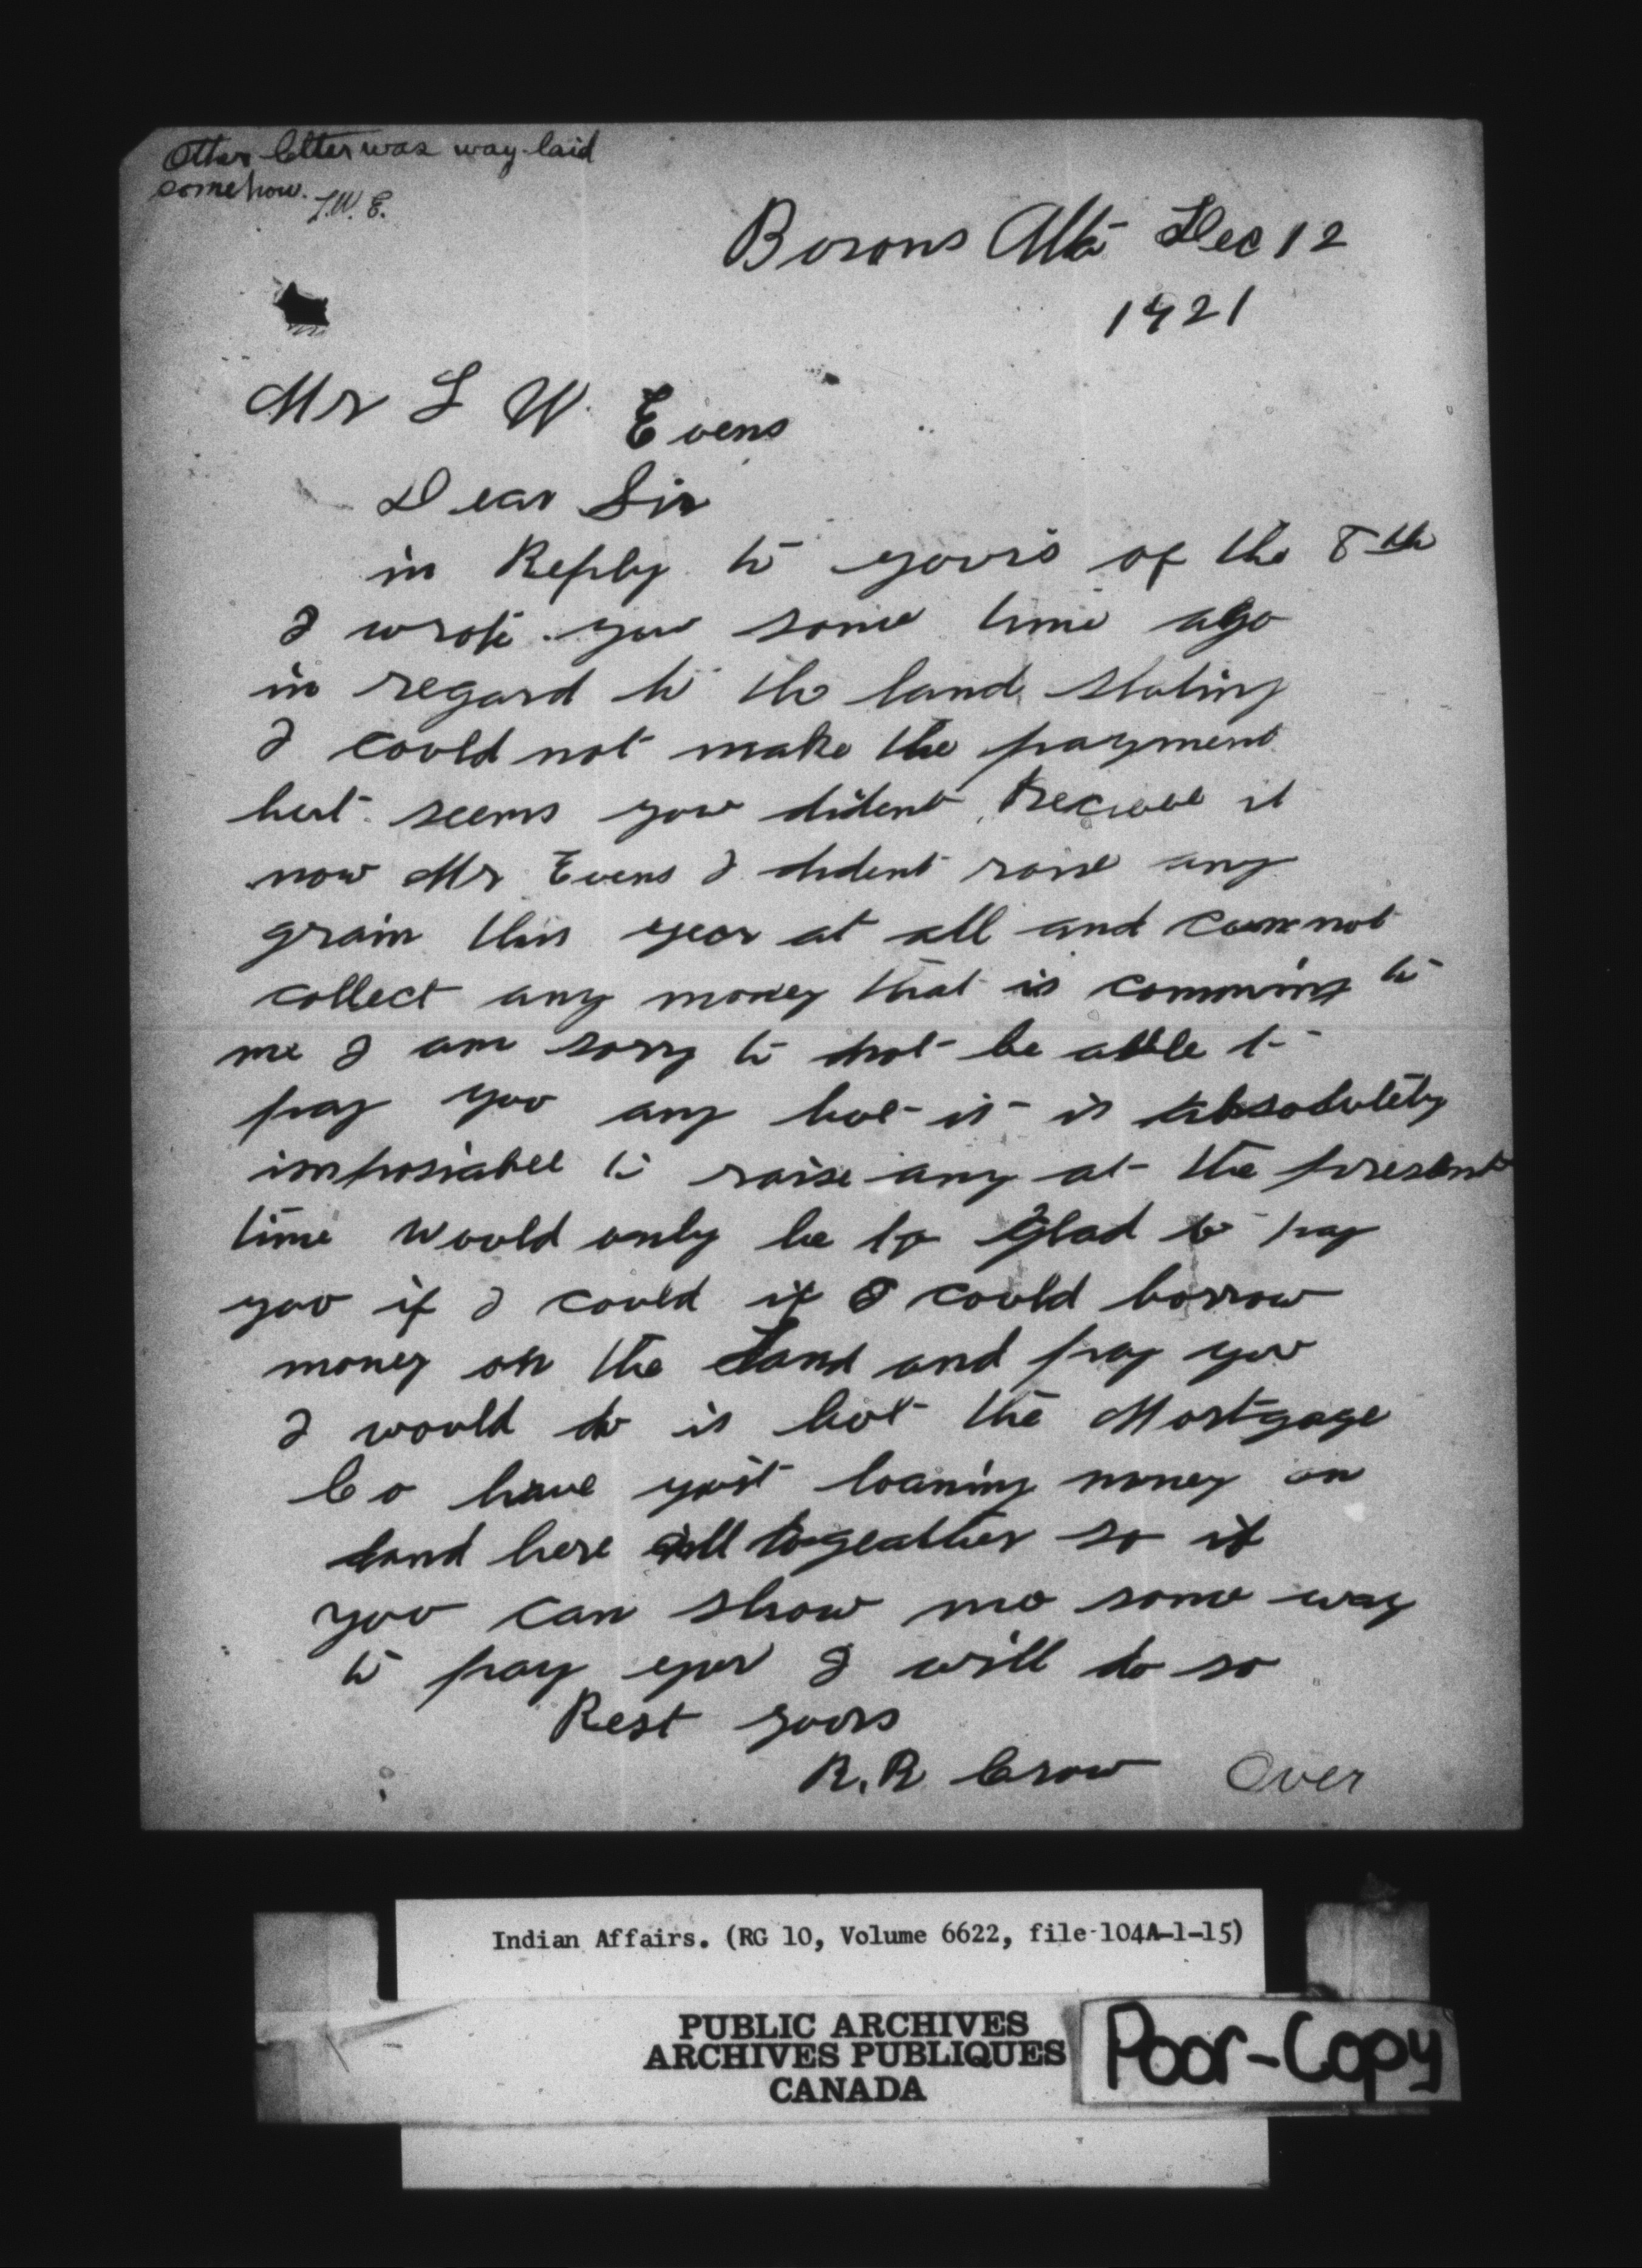 Other letter was way-laid
somehow. L.W.E.
Dec 12
1921
Mr L W. Evens
Dear Sir
in Reply to yours of the 8th
I wrote you some time ago
in regard to the land stating
I could not make the payment
but seems you dident Recieve it
now Mr Evens I dident raise any
grain this year at all and cannot
collect any money that is comming to
me I am sorry to not be able to
pay you any but it is absolutely
impossiabel to raise any at the present
time would only be to glad to pay
you if I could if I could borrow
money on the land and pay you
I would do is but the Mortgage
Co have loaning money on
land here all togeather so if
you can show me some way
to pay you I will do so
Rest yours
R.R Crow Over
Indian Affairs. (RG 10, Volume 6622, file-104A-1-15)
PUBLIC ARCHIVES
ARCHIVES PUBLIQUES
CANADA
Poor-Copy